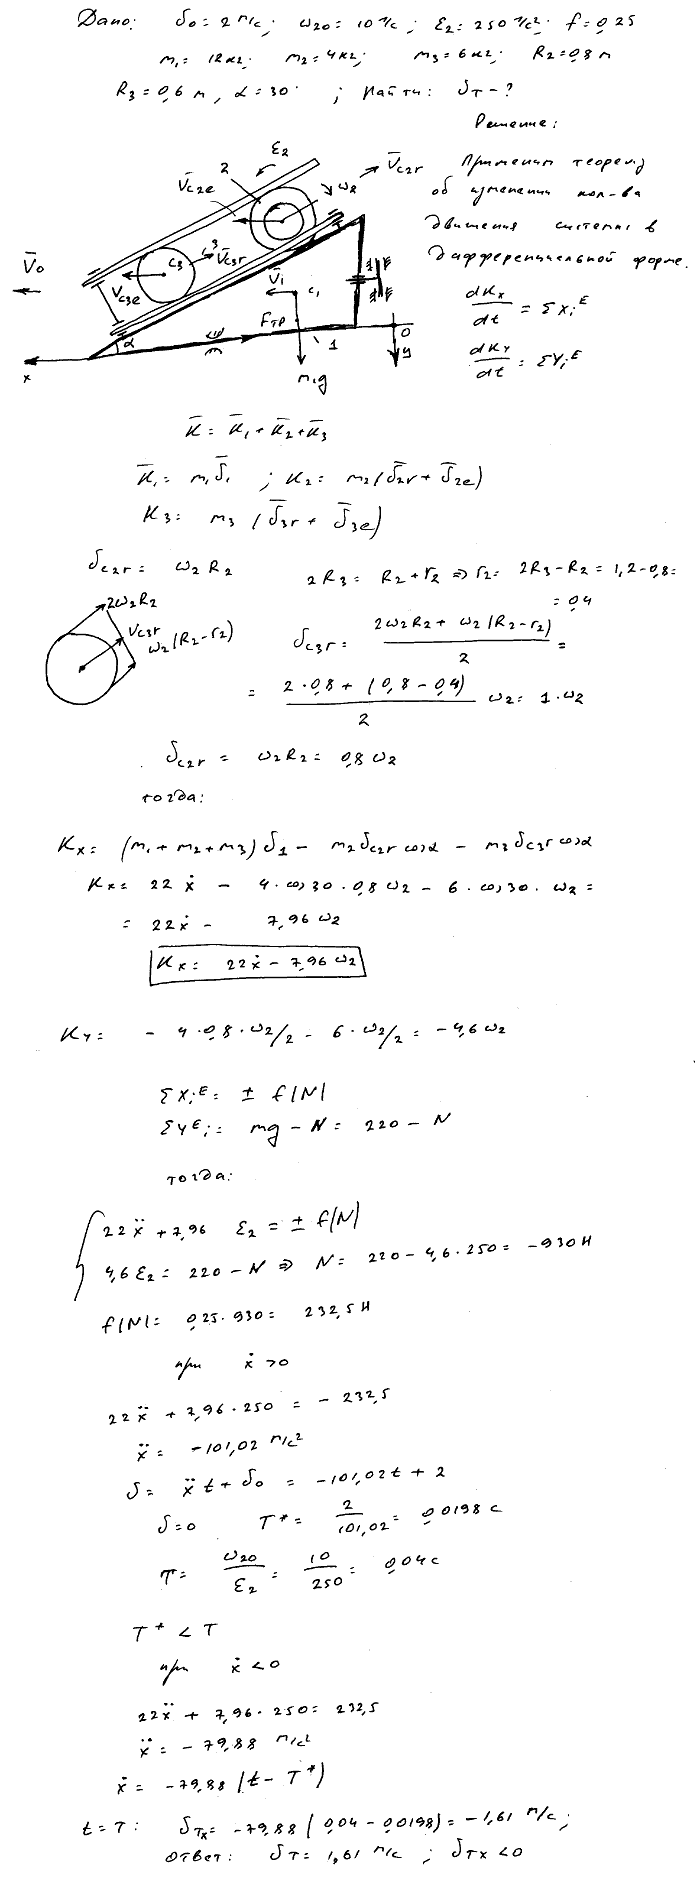 Дано: υ0 = 2 м/с; ω20 = 10 1/с; ε2 = 250 1/с²; f = 0,25
m1 = 12 кг; m2 = 4 кг; m3 = 6 кг; R2 = 0,8 м
R3 = 0,6 м, α = 30°; Найти: υT - ?
Решение:
Применим теорему
об изменении кол-ва
движения системы в
дифференциальной форме.
dKx/dt = ΣXiE
dKy/dt = ΣYiE
ε2
2
V̄c2e
ω2
V̄c2r
V̄0
C3
3
V̄c3r
Vc3e
V̄1
C1
Fтр
α
1
0
x
y
m1g
K̄ = K̄1 + K̄2 + K̄3
K̄1 = m1ῡ1 ; K2 = m2(ῡ2r + ῡ2e)
K3 = m3 (ῡ3r + ῡ3e)
υc2r = ω2R2
2R3 = R2 + r2 ⇒ r2 = 2R3 - R2 = 1,2 - 0,8 =
= 0,4
2ω2R2
Vc3r
ω2(R2-r2)
υc3r = (2ω2R2 + ω2(R2-r2))/2 =
= (2·0,8 + (0,8 - 0,4))/2 ω2 = 1·ω2
υc2r = ω2R2 = 0,8ω2
тогда:
Kx = (m1 + m2 + m3)υ1 - m2υc2r cosα - m3υc3r cosα
Kx = 22ẋ - 4·cos30·0,8ω2 - 6·cos30·ω2 =
= 22ẋ - 7,96ω2
Kx = 22ẋ - 7,96ω2
Ky = - 4·0,8·ω2/2 - 6·ω2/2 = -4,6ω2
ΣXiE = ± f|N|
ΣYEi = mg - N = 220 - N
тогда:
22ẍ + 7,96 ε2 = ± f|N|
4,6ε2 = 220 - N ⇒ N = 220 - 4,6·250 = -930 Н
f|N| = 0,25·930 = 232,5 Н
при ẋ > 0
22ẍ + 7,96·250 = - 232,5
ẍ = -101,02 м/с²
υ = ẍt + υ0 = -101,02t + 2
υ = 0 T* = 2/101,02 = 0,0198 с
T = ω20/ε2 = 10/250 = 0,04 с
T* < T
при ẋ < 0
22ẍ + 7,96·250 = 232,5
ẍ = -79,88 м/с²
ẋ = -79,88 (t - T*)
t = T: υTx = -79,88 (0,04 - 0,0198) = -1,61 м/с;
ответ: υT = 1,61 м/с ; υTx < 0